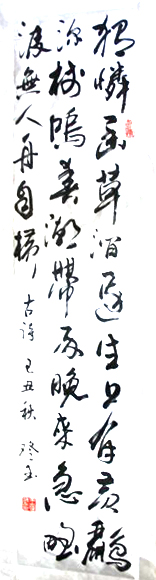 獨憐幽草澗邊生上有黃鸝
深樹鳴春潮帶雨晚來急野
渡無人舟自橫
古詩 己丑秋